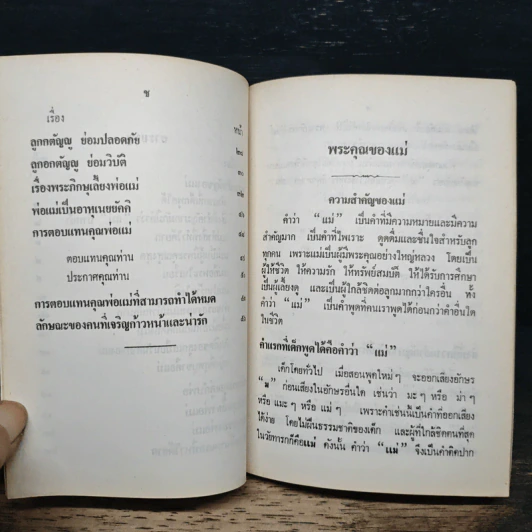 ช
เรื่อง
หน้า
ลูกกตัญญู ย่อมปลอดภัย
ลูกอกตัญญู ย่อมวิบัติ
เรื่องพระภิกษุเลี้ยงพ่อแม่
พ่อแม่เป็นอาหุเนยยัคคิ
การตอบแทนคุณพ่อแม่
ตอบแทนคุณท่าน
ประกาศคุณท่าน
การตอบแทนคุณพ่อแม่ที่สามารถทำได้หมด
ลักษณะของคนที่เจริญก้าวหน้าและน่ารัก
พระคุณของแม่
ความสำคัญของแม่
คำว่า “แม่” เป็นคำที่มีความหมายและมีความ
สำคัญมาก เป็นคำที่ไพเราะ ดูดดื่มและชื่นใจสำหรับลูก
ทุกคน เพราะแม่เป็นผู้มีพระคุณอย่างใหญ่หลวง โดยเป็น
ผู้ให้ชีวิต ให้ความรัก ให้ทรัพย์สมบัติ ให้ได้รับการศึกษา
เป็นผู้เลี้ยงดู และเป็นผู้ใกล้ชิดต่อลูกมากกว่าใครอื่น ทั้ง
คำว่า “แม่” เป็นคำพูดที่คนเราพูดได้ก่อนกว่าคำอื่นใด
ในชีวิต
คำแรกที่เด็กพูดได้คือคำว่า “แม่”
เด็กโดยทั่วไป เมื่อสอนพูดใหม่ ๆ จะออกเสียงอักษร
“ม” ก่อนเสียงในอักษรอื่นใด เช่นว่า มะ ๆ หรือ ม่า ๆ
หรือ แมะ ๆ หรือ แม่ ๆ เพราะคำเช่นนี้เป็นคำที่ออกเสียง
ได้ง่าย โดยไม่ฝืนธรรมชาติของเด็ก และผู้ที่ใกล้ชิดคนที่สุด
ในวัยทารกก็คือแม่ ดังนั้น คำว่า “แม่” จึงเป็นคำติดปาก